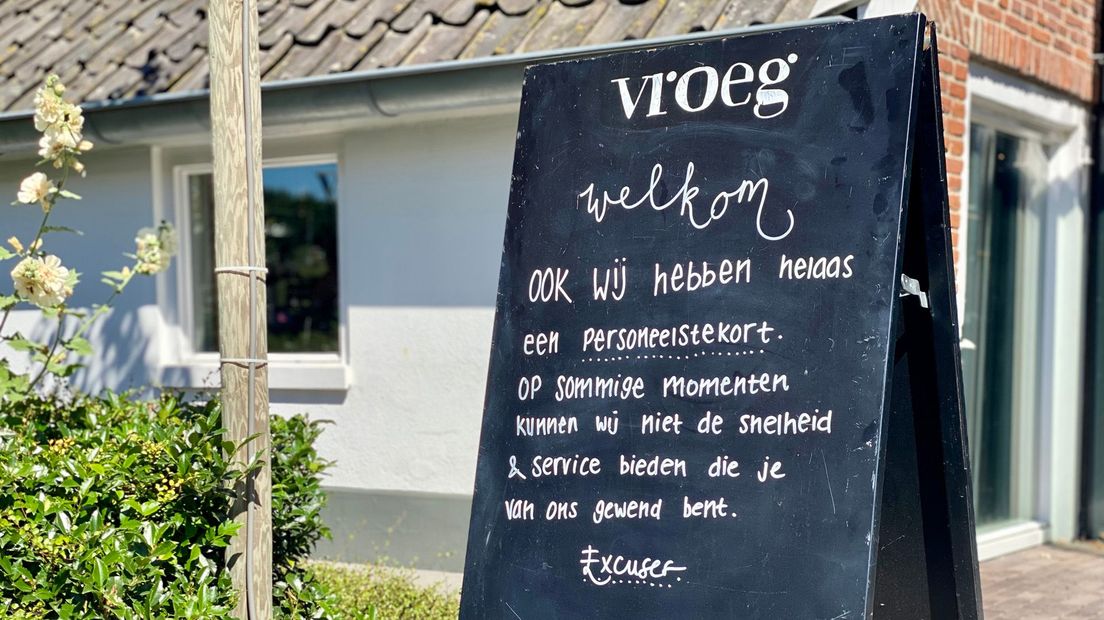 vroeg
welkom
OOK wij hebben helaas
een personeelstekort.
op sommige momenten
kunnen wij niet de snelheid
& service bieden die je
van ons gewend bent.
Excuses